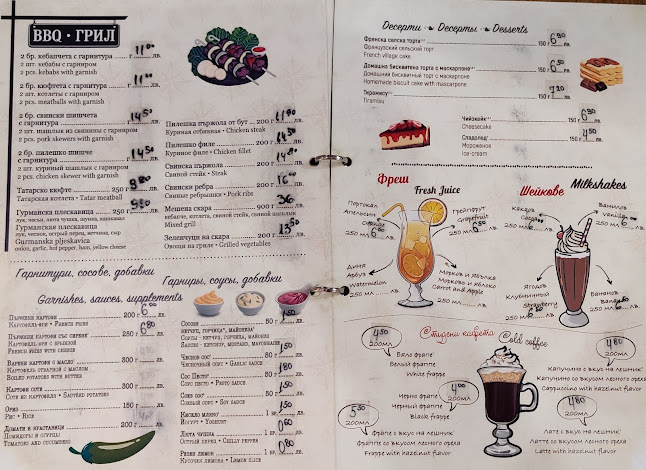 BBQ • ГРИЛ
2 бр. кебапчета с гарнитура г 11⁰⁰ лв.
2 шт. кебабы с гарниром
2 pcs. kebabs with garnish
2 бр. кюфтета с гарнитура г 11⁰⁰ лв.
2 шт. котлеты с гарниром
2 pcs. meatballs with garnish
2 бр. свински шишчета
с гарнитура г 14⁵⁰ лв.
2 шт. шашлык из свинины с гарниром
2 pcs. pork skewers with garnish
2 бр. пилешко шишче
с гарнитура г 14⁵⁰ лв.
2 шт. куриный шашлык с гарниром
2 pcs. chicken skewer with garnish
Татарско кюфте 250 г лв.
Татарская котлета • Tatar meatball
Гурманска плескавица 250 г лв.
лук, чесън, люта чушка, шунка, кашкавал
Гурманская плескавица
лук, чеснок, острый перец, ветчина, сыр
Gurmanska pljeskavica
onion, garlic, hot pepper, ham, yellow cheese
Пилешка пържола от бут 200 г лв.
Куриная отбивная • Chicken steak
Пилешко филе 200 г 14⁵⁰ лв.
Куриное филе • Chicken fillet
Свинска пържола 200 г лв.
Свиной стейк • Steak
Свински ребра 200 г 16⁰⁰ лв.
Свиные ребрышки • Pork ribs
Мешена скара 900 г 36 лв.
кебапче, котлета, свиной стейк, свиной шашлык
Mixed grill
Зеленчуци на скара 200 г 13⁰⁰ лв.
Овощи на гриле • Grilled vegetables
Гарнитури, сосове, добавки
Гарниры, соусы, добавки
Garnishes, sauces, supplements
Пържени картофи 200 г 6⁰⁰ лв.
Картофель-фри • French fries
Пържени картофи със сирене 250 г 6⁸⁰ лв.
Картофель-фри с брынзой
French fries with cheese
Варени картофи с масло 300 г лв.
Картофель отварной с маслом
Boiled potatoes with butter
Картофи соте 300 г лв.
Соте из картофеля • Sautéed potatoes
Ориз 150 г лв.
Рис • Rice
Домати и краставици 200 г лв.
Помидоры и огурцы
Tomatoes and cucumbers
Сосове 50 г 1⁵⁰ лв.
кетчуп, горчица, майонеза
Соусы - кетчуп, горчица, майонез
Sauces - ketchup, mustard, mayonnaise
Чеснов сос 80 г 1⁵⁰ лв.
Чесночный соус • Garlic sauce
Сос Песто 80 г 1⁸⁰ лв.
Соус песто • Pesto sauce
Соев сос 50 г 1⁵⁰ лв.
Соевый соус • Soy sauce
Кисело мляко 1 бр. 1⁵⁰ лв.
Йогурт • Yoghurt
Люта чушка 1 бр. 0⁸⁰ лв.
Острый перец • Chilly pepper
Резен лимон 1 бр. 0⁸⁰ лв.
Кусочек лимона • Lemon slice
Десерти • Десерты • Desserts
Френска селска торта 150 г 6⁹⁰ лв.
Французский сельский торт
French village cake
Домашна бисквитена торта с маскарпоне 150 г 6⁵⁰ лв.
Домашний бисквитный торт с маскарпоне
Homemade biscuit cake with mascarpone
Тирамису 150 г 7²⁰ лв.
Tiramisu
Чийзкейк 150 г 6⁹⁰ лв.
Cheesecake
Сладолед 150 г 4⁵⁰ лв.
Мороженое
Ice-cream
Фреш
Fresh Juice
Портокал
Апельсин
Orange
250 мл. 6 лв.
Грейпфрут
Grapefruit
250 мл. 6 лв.
Диня
Арбуз
Watermelon
250 мл. лв.
Моркови и ябълка
Морковь и яблоко
Carrot and Apple
250 мл. лв.
Шейкове
Milkshakes
Какао
Cocoa
250 мл. 6 лв.
Ванилов
Vanilla
250 мл. 6 лв.
Ягодов
Клубничный
Strawberry
250 мл. 6 лв.
Бананов
Banana
250 мл. 6 лв.
Студени кафета
Cold coffee
4⁵⁰
200мл
Бяло фрапе
Белый фраппе
White frappe
4⁰⁰
200мл
Черно фрапе
Черный фраппе
Black frappe
5⁵⁰
200мл
Фрапе с вкус на лешник
Фраппе со вкусом лесного ореха
Frappe with hazelnut flavor
4⁸⁰
200мл
Капучино с вкус на лешник
Капучино со вкусом лесного ореха
Cappuccino with hazelnut flavor
4⁸⁰
200мл
Лате с вкус на лешник
Латте со вкусом лесного ореха
Latte with hazelnut flavor